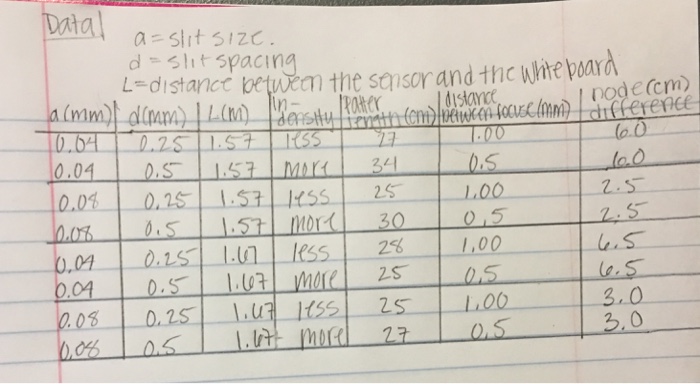 Data
a = slit size.
d = slit spacing
L = distance between the sensor and the whiteboard
a(mm) d(mm) L(m) in-density Patter length (cm) distance between (mm) node(cm) difference
0.04 0.25 1.57 less 27 1.00 6.0
0.04 0.5 1.57 more 34 0.5 6.0
0.08 0.25 1.57 less 25 1.00 2.5
0.08 0.5 1.57 more 30 0.5 2.5
0.04 0.25 1.67 less 28 1,00 6.5
0.04 0.5 1.67 more 25 0.5 6.5
0.08 0.25 1.67 less 25 1.00 3.0
0.08 0.5 1.67 more 27 0.5 3.0